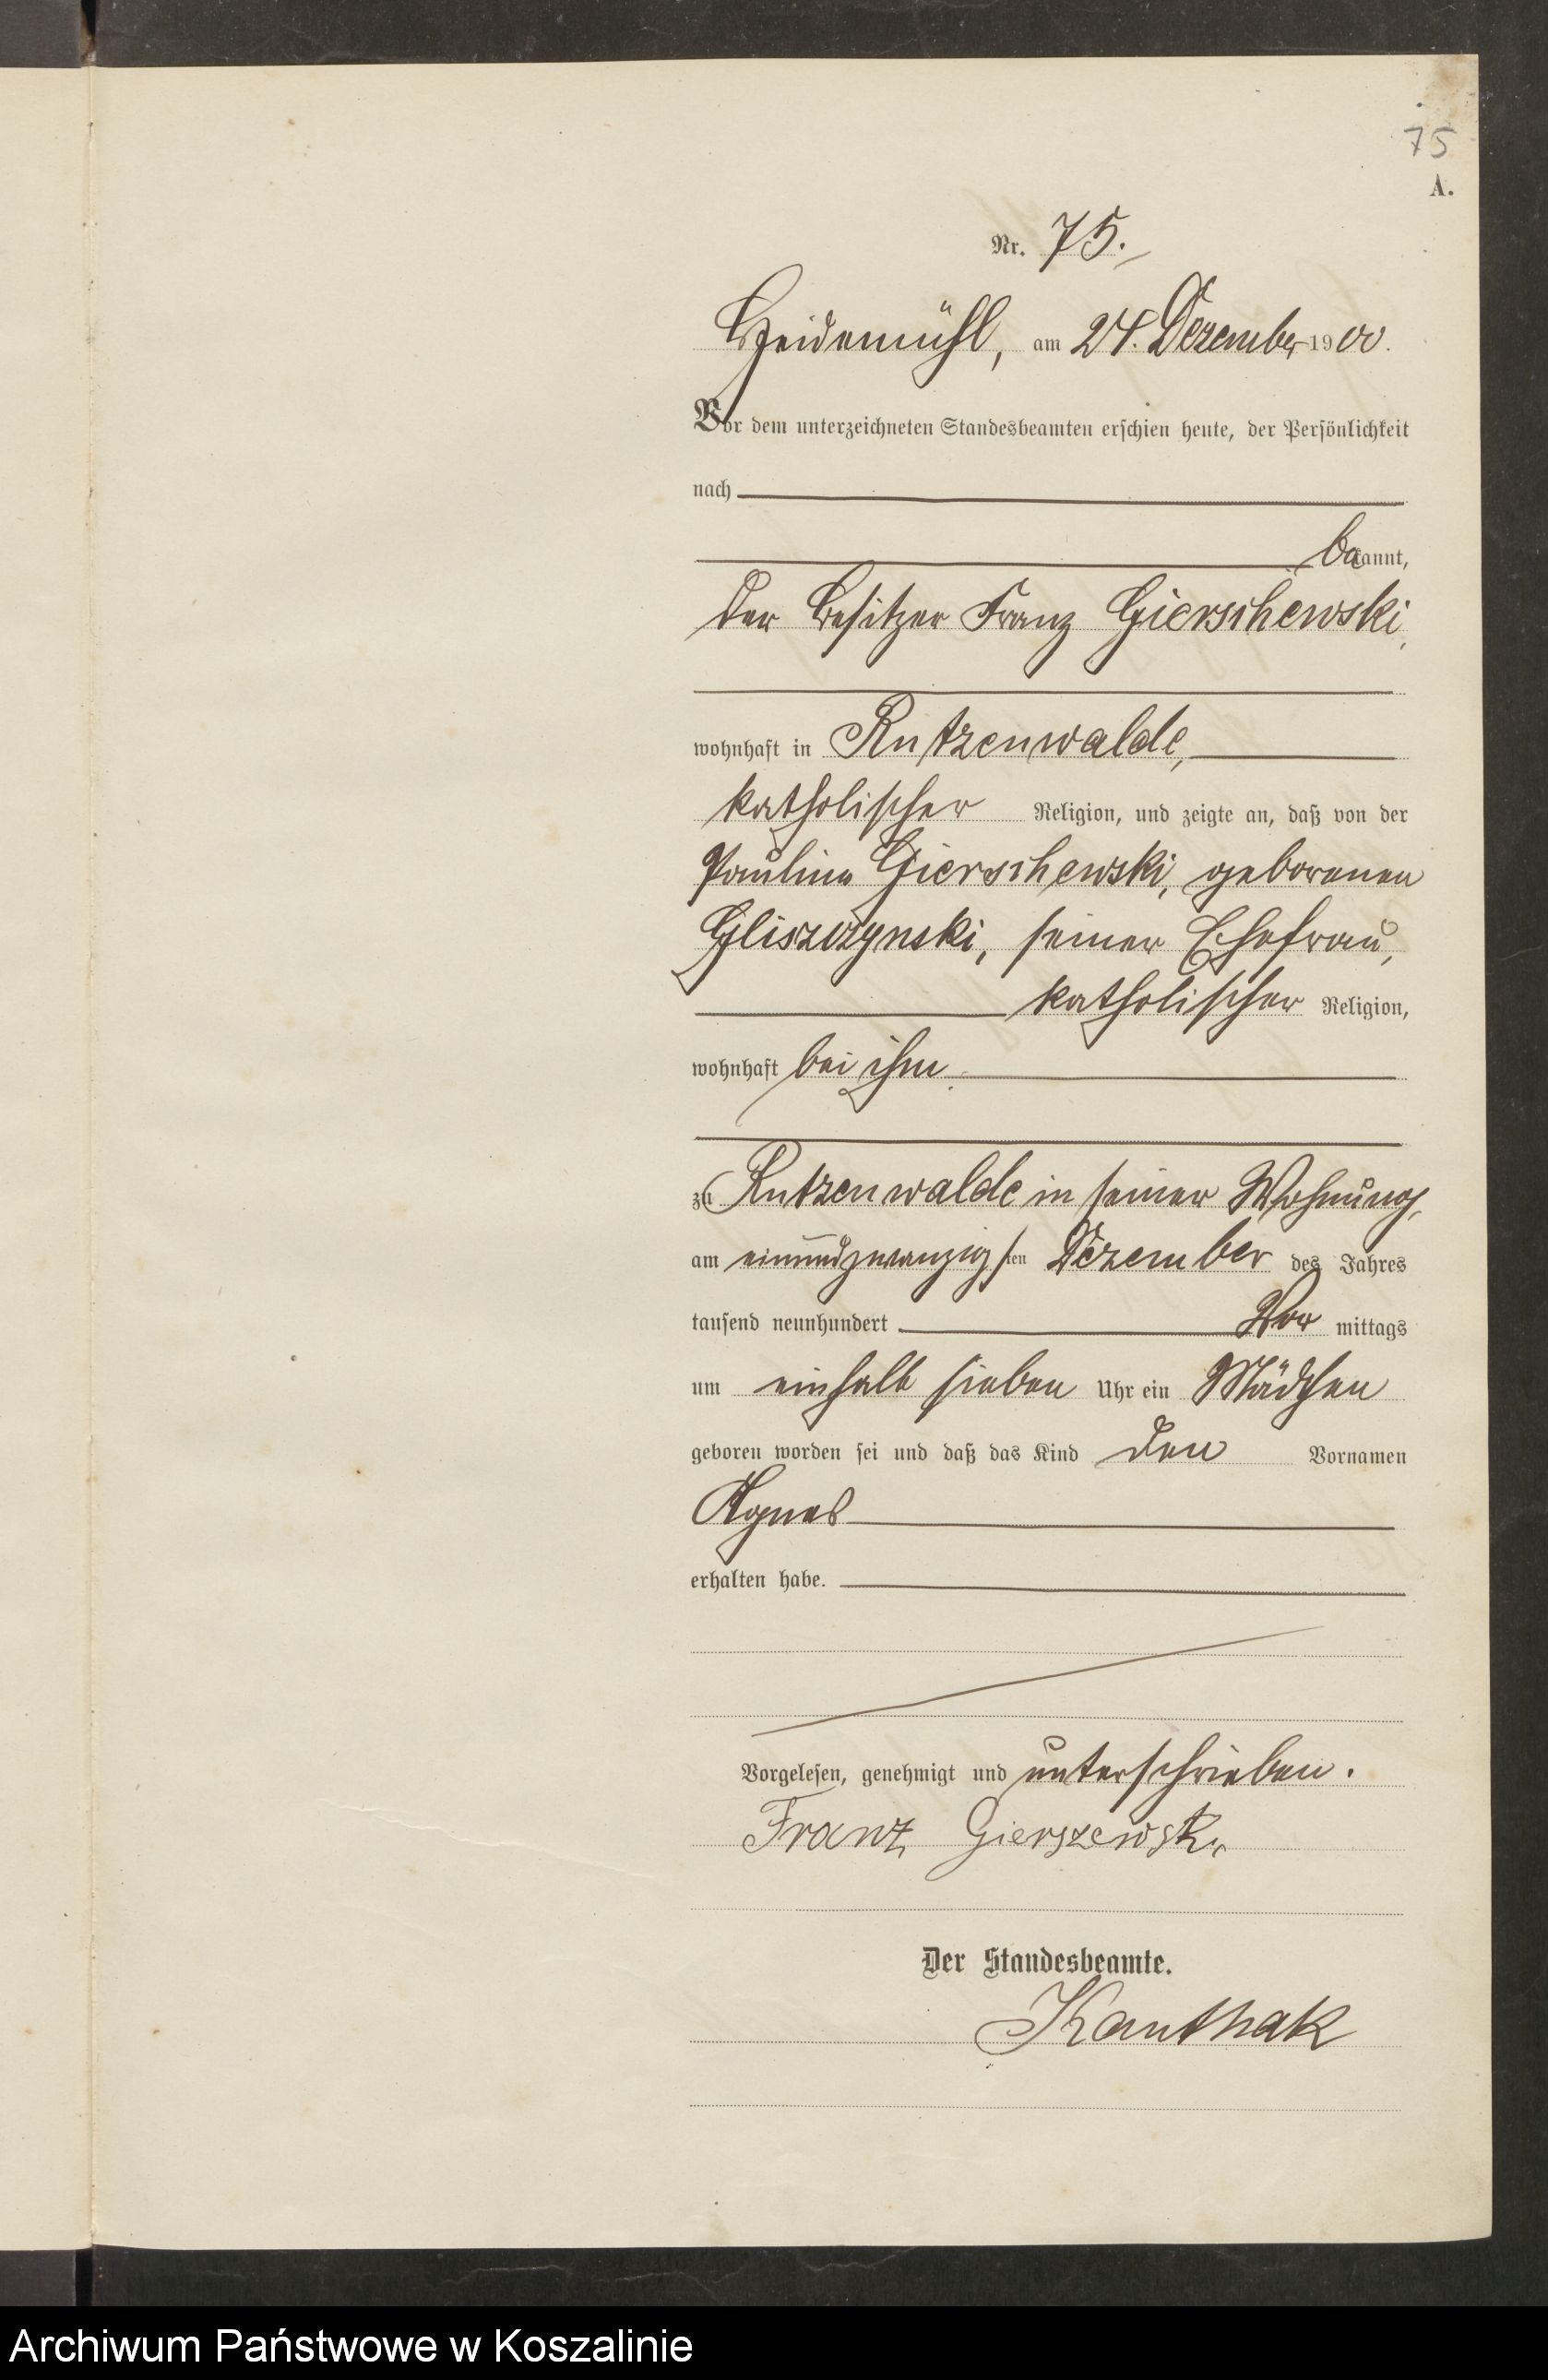 75
A.
Nr. 75.
Heidemühl, am 24. Dezember 1900.
Vor dem unterzeichneten Standesbeamten erschien heute, der Persönlichkeit
nach
bekannt,
der Besitzer Franz Gierschewski,
wohnhaft in Rutzenwalde,
katholischer Religion, und zeigte an, daß von der
Pauline Gierschewski, geborenen
Gliszczynski, seiner Ehefrau,
katholischer Religion,
wohnhaft bei ihm
zu Rutzenwalde in seiner Wohnung,
am einundzwanzigsten Dezember des Jahres
tausend neunhundert Vor mittags
um einhalb sieben Uhr ein Mädchen
geboren worden sei und daß das Kind den Vornamen
Agnes
erhalten habe.
Vorgelesen, genehmigt und unterschrieben.
Franz Gierszewski
Der Standesbeamte.
Kanthak
Archiwum Państwowe w Koszalinie